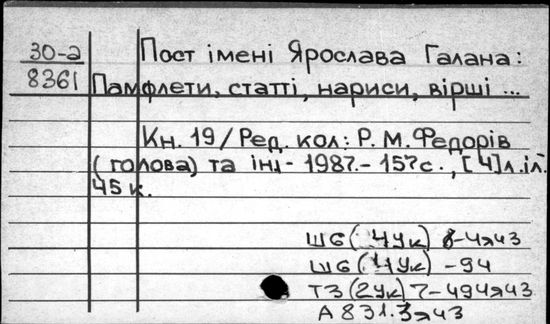 30-а
8361
Пост імені Ярослава Галана:
Памфлети, статті, нариси, вірші ...
Кн. 19/Ред. кол: Р. М. Федорів
(голова) та інш- 1987.- 157с., [4]л.іл.
45 к.
Ш6(4Ук) 8-4я43
Ш6(4Ук) -94
Т3(2Ук) 7-494я43
А 831.3я43